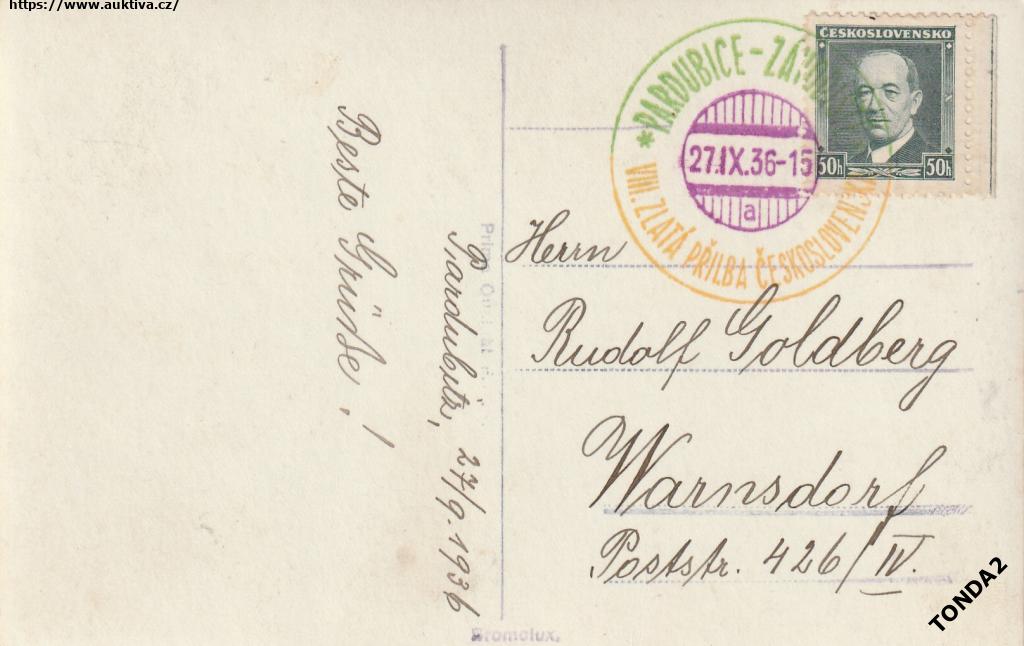 https://www.auktiva.cz/
ČESKOSLOVENSKO
50h 50h
* PARDUBICE -
27.IX.36-15
a
VIII. ZLATÁ PŘILBA
Beste Grüße!
Pardubitz, 27/9.1936
Herrn
Rudolf Goldberg
Warnsdorf
Poststr. 426/IV.
Bromolux.
TONDA2